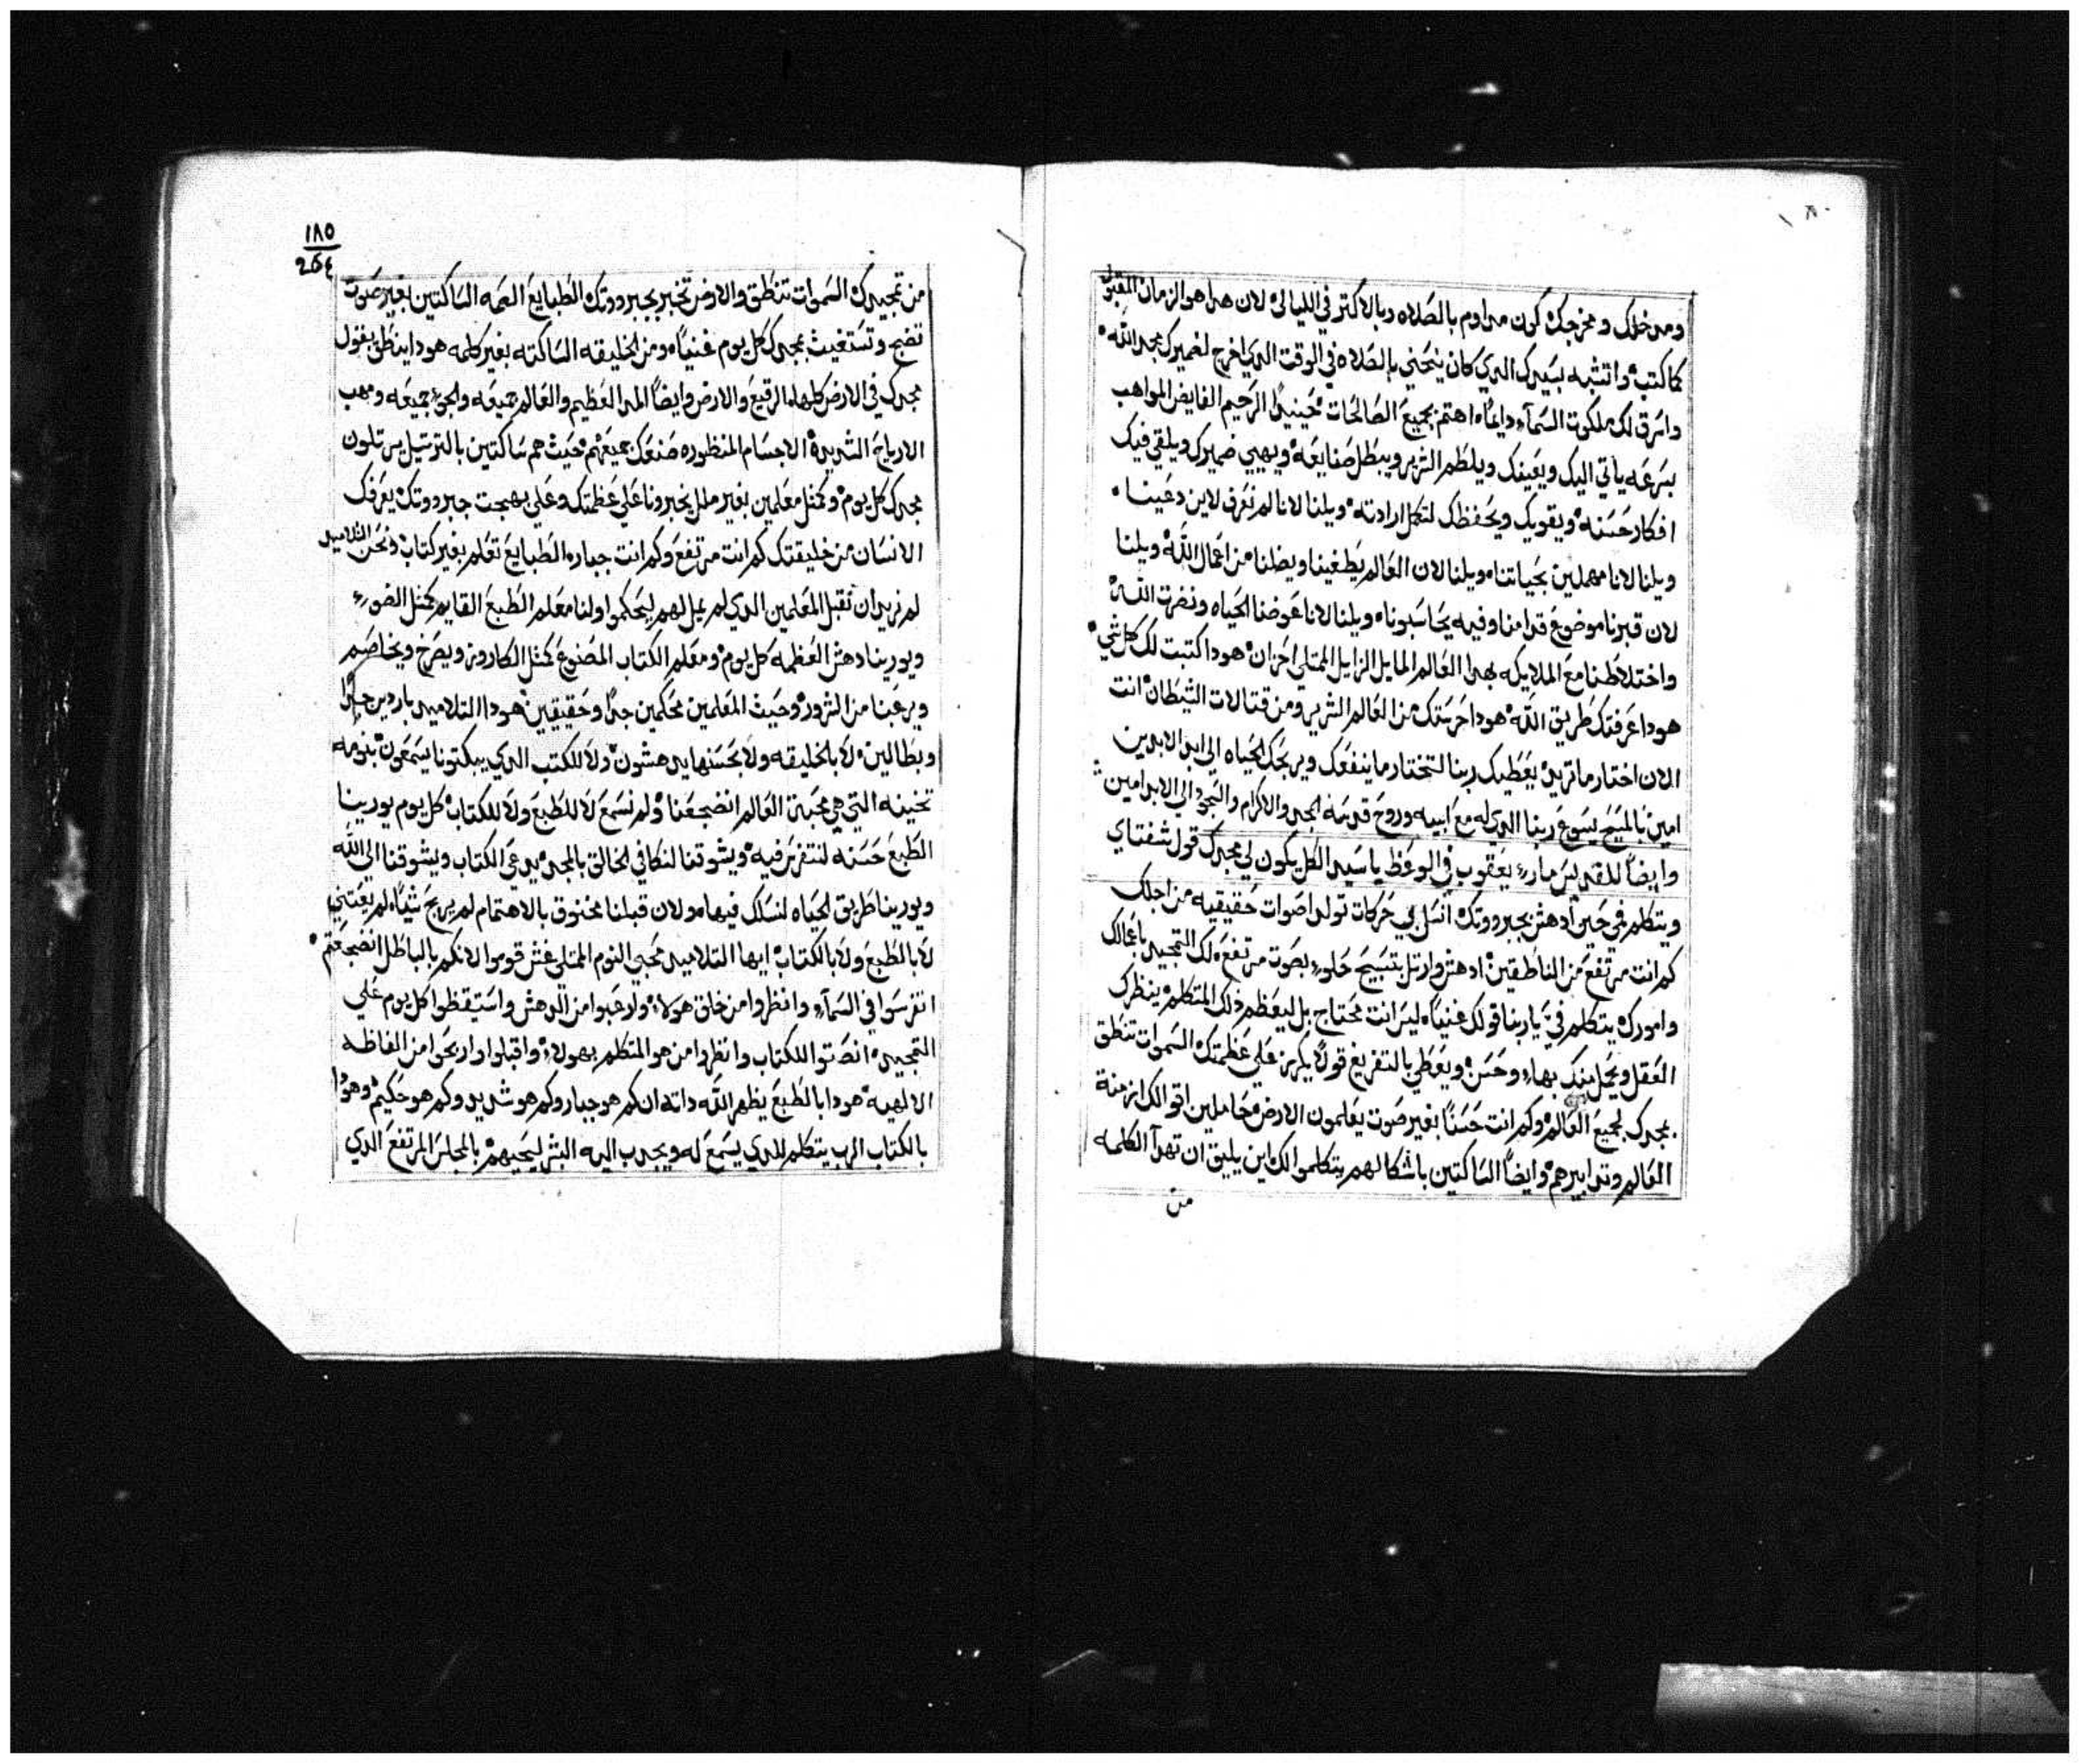 ومدخلك ومخرجك كون مداوم بالصلاه وبالاكتر في الليالي لان هدا هو الزمان المقبول
كما كتب واتشبه بسيدك الدي كان ينحني بالصلاه في الوقت الدي اخرج لضميرك مجد الله
واشرق لك ملكوت السماء دايماً اهتم بجميع الصالحات حينيدٍ الرحيم الفايض المواهب
بسرعه ياتي اليك ويعينك ويلطم الشرير ويبطل صنايعه ويهيي ضميرك ويلقي فيك
افكار حسنه ويقويك ويحفظك لتكمل ارادته ويلنا لانا لم نعرف لاين دعينا
ويلنا لانا مهملين بحياتنا ويلنا لان العالم يطغينا ويضلنا من اعمال الله ويلنا
لان قبرنا موضوع قدامنا وفيه يحاسبونا ويلنا لانا عوضنا الحياه ونضرت الله
واختلاطنا مع الملايكه بهدا العالم المايل الزايل الممتلي احزان هودا كتبت لك كل شي
هودا عرفتك طريق الله هودا حرستك من العالم الشرير ومن قتالات الشيطان انت
الان اختار ما تريد يعطيك ربنا لتختار ما ينفعك ويربحك الحياه الي ابد الابدين
امين بالمسيح يسوع ربنا الدي له مع ابيه وروح قدسه المجد والاكرام والسجود الي الابد امين
وايضاً للقديس مارى يعقوب في الوعظ يا سيد الكل يكون لي مجدك قول شفتاي
ويتكلم في حين ادهش بجبرووتك انسل بي حركات تولد اصوات حقيقيه من اجلك
كم انت مرتفع من الناطقين ادهش وارتل بتسبيح حلوٍ بصوت مرتفع لك التمجيد باعمالك
وامورك يتكلم فيّ يا ربنا قولك غنياً ليس انت محتاج بل ليعظم دلك المتكلم ينظرك
العقل ويحبل منك بهاءٍ وحسن ويعطي بالتفريغ قولاً يكرز علي عظمتك السموات تنطق
بمجدك لجميع العالم وكم انت حسناً بغير صوت يعلمون الارض حاملين اقوالك ازمنة
العالم وتدابيرهم وايضاً الساكتين باشكالهم يتكلموا لك اين يليق ان تهدآ الكلمه
من
١٨٥
من تمجيدك السموات تنطق والارض تخبر بجبرووتك الطبايع الصمه الساكتين بغير صوت
تضج وتستغيث بمجدك كل يوم غنياً ومن الخليقه الساكته بغير كلمه هودا ينطق بقول
مجدك في الارض كلها الرقيع والارض وايضاً المد العظيم والعالم جميعه والجو جميعه ومهب
الارياح الشديده الاجسام المنظوره صنعك جميعهم حيث هم ساكتين بالترتيل يرتلون
مجدك كل يوم وكمثل معلمين بغير ملل يخبرونا علي عظمتك وعلي بهجت جبرووتك يعرفك
الانسان من خليقتك كم انت مرتفع وكم انت جباره الطبايع تعلم بغير كتاب ونحن التلاميد
لم نريد ان نقبل المعلمين الدي لم يمل لهم ليحكموا ولنا معلم الطبع القايم كمثل الضوء
ويورينا دهش العظمه كل يوم ومعلم الكتاب المصنوع كمثل الكاروز ويصرخ ويخاصم
ويرعبنا من الشرور وحيث المعلمين محكمين جداً وحقيقيين هودا التلاميد باردين جداً
وبطالين لا بالخليقه ولا بحسنها يدهشون ولا للكتب الدي يبكتونا يسمعون بنومه
تخينه التي هي محبة العالم انضجعنا ولم نسمع لا للطبع ولا للكتاب كل يوم يورينا
الطبع حسنه لنتفرس فيه ويشوقنا لنكافي الخالق بالمجد يدعي الكتاب ويشوقنا الي الله
ويورينا طريق الحياه لنسلك فيها مولان قبلنا مخنوق بالاهتمام لم يربح شياً لم يعتني
لا بالطبع ولا بالكتاب ايها التلاميد محبي النوم الممتلي غش قوموا لانكم بالباطل انضجعتم
اتفرسوا في السماء وانظروا من خلق هولاء ولا رعبوا من الدهش واستيقظوا كل يوم علي
التمجيد انصتوا للكتاب وانظروا من هو المتكلم بهولاء واقبلوا واربحوا من الفاظه
الالهيه هودا بالطبع يظهر الله داته ان كم هو جبار وكم هو شديد وكم هو حكيم وهودا
بالكتاب الرب يتكلم للدي يسمع له ويجدب اليه البشر ليحييهم بالمجلس المرتفع الدي